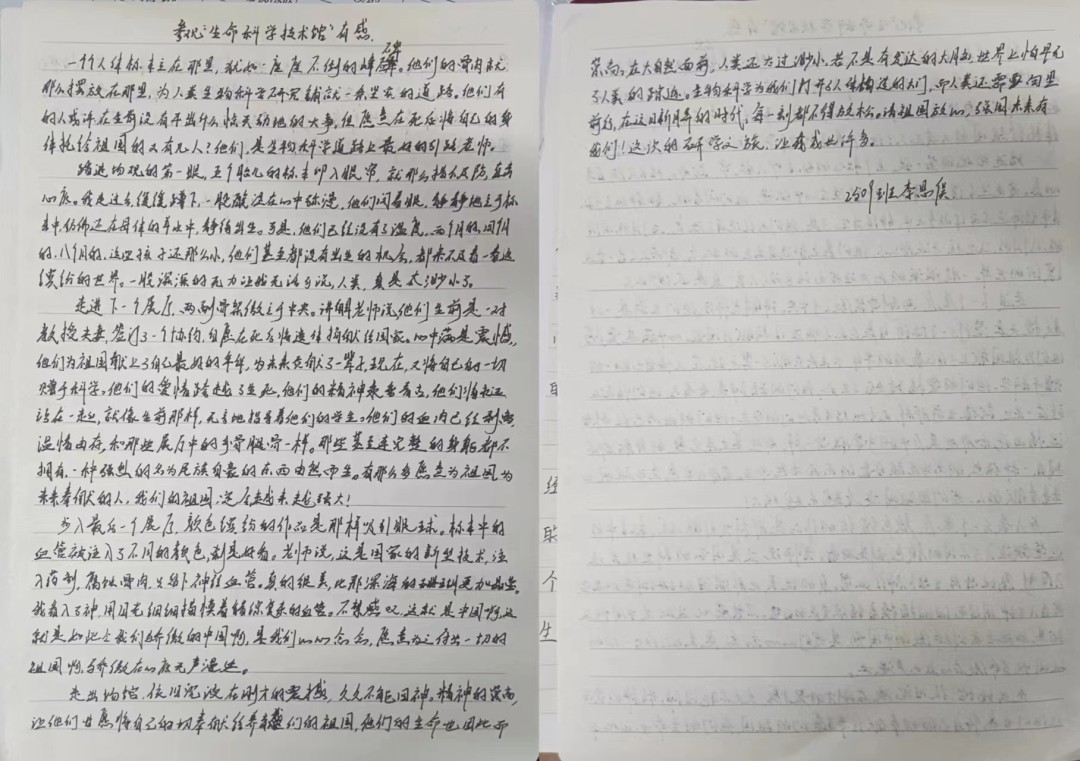 参观“生命科学技术馆”有感
一个个人体标本立在那里,犹如一座座不倒的丰碑。他们的骨肉就
那么摆放在那里,为人类生物科学研究铺就一条坚实的道路。他们有
的人或许在生前没有干出什么惊天动地的大事,但愿意在死后将自己的身
体托给祖国的又有几人?他们,是生物科学道路上最好的引路老师。
踏进场观的第一眼,五个胎儿的标本印入眼帘,就那么猝不及防,直击
心底。我走过去缓缓蹲下,一股酸涩在心中弥漫,他们闭着眼,静静地立于标
本中,仿佛还在母体的羊水中,静待出生。可是,他们已经没有了温度。两个月的,四个月
的,八个月的,这些孩子还那么小,他们甚至都没有出生的机会,都来不及看一看这
缤纷的世界。一股深深的无力让我无法言说,人类,真是太渺小了。
走进下一个展厅,两副骨架傲立于中央。讲解老师说他们生前是一对
教授夫妻,签订了一个协约,自愿在死后将遗体捐献给国家。心中满是震撼,
他们为祖国献上了自己最好的年华,为未来贡献了一辈子,现在,又将自己的一切
赠予科学。他们的爱情跨越了生死,他们的精神永垂青古,他们将永远
站在一起,就像生前那样,无言地指导着他们的学生。他们的血肉已经剥离,
温情犹存,和那些展厅中的手骨腿骨一样。那些甚至连完整的身躯都不
拥有,一种强烈的名为民族自豪的东西由然而生。有那么多愿意为祖国为
未来奉献的人,我们的祖国,定会越来越强大!
步入最后一个展厅,颜色缤纷的作品是那样吸引眼球。标本中的
血管被注入了不同的颜色,别是好看。老师说,这是国家的新型技术,注
入药剂,腐蚀骨肉,只留下神经血管。真的很美,比那深海的珊瑚更加晶莹。
我看入了神,用目光细细描摹着错综复杂的血管。不禁感叹,这就是中国啊,这
就是如此令我们骄傲的中国啊,是我们心心念念,愿意为之付出一切的
祖国啊,骄傲在心底无声漫延。
走出场馆,依旧沉浸在刚才的震撼,久久不能回神。精神的崇高
让他们甘愿将自己的一切奉献给养育着他们的祖国,他们的生命也因此而
崇高。在大自然面前,人类还太过渺小,若不是有发达的大脑,世界上怕早无
了人类的踪迹。生物科学为我们打开了人体构造的大门,而人类还需要向里
前行,在这日新月异的时代,每一刻都不得放松。请祖国放心,强国未来有
我们!这次的研学之旅,让我感悟许多。
2509班 李思俣
经
联
个
生